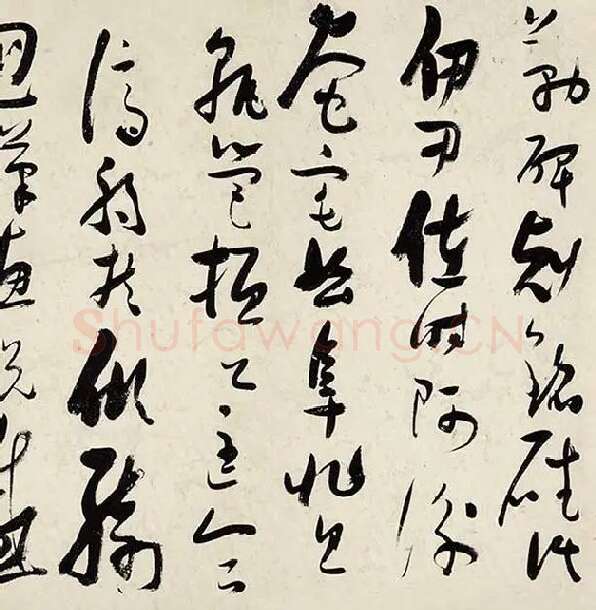 勒碑刻銘磻溪
伊尹佐時阿衡
奄宅曲阜微旦
孰營桓公匡合
濟弱扶傾綺
迴漢惠說
Shufawang.CN